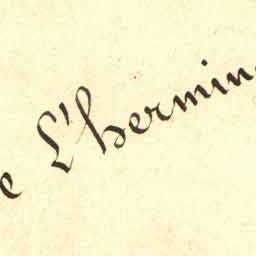 e L'hermin